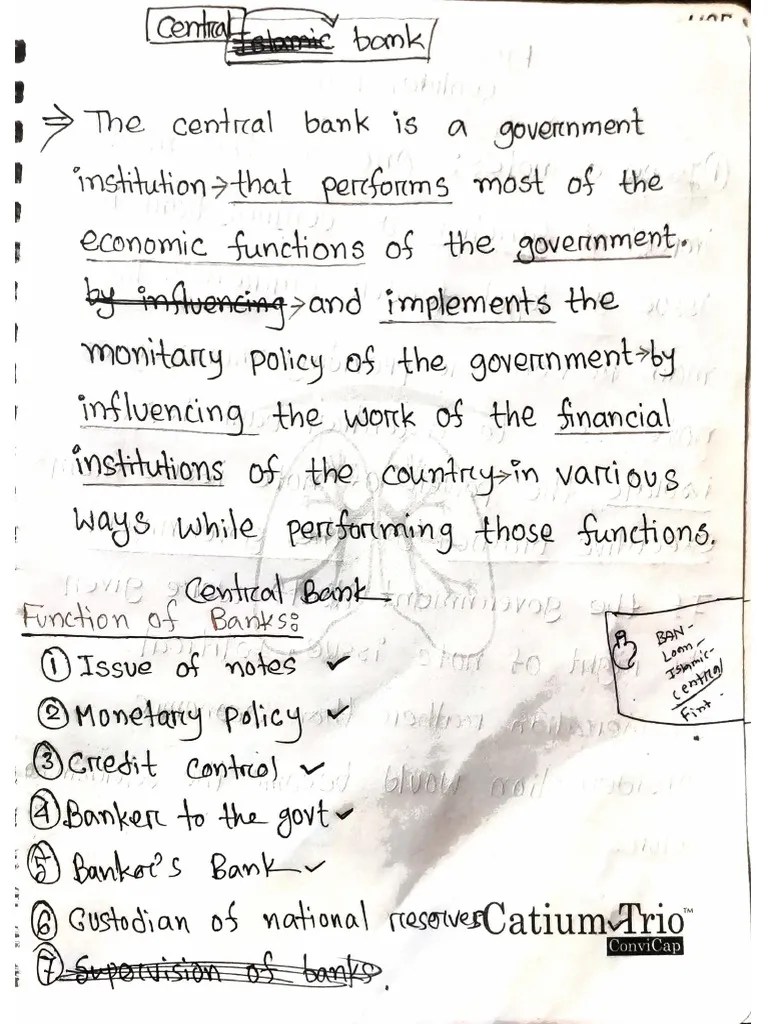 Central Islamic bank
⇒ The central bank is a government
institution→that performs most of the
economic functions of the government.
by influencing→and implements the
monitary policy of the government→by
influencing the work of the financial
institutions of the country→in various
ways while performing those functions.
Central Bank
Function of Banks:
① Issue of notes ✓
② Monetary policy ✓
③ Credit control ✓
④ Banker to the govt ✓
⑤ Banker's Bank ✓
⑥ Custodian of national reserves ✓
⑦ Supervision of banks.
BAN-
Loan-
Islamic-
central
Fint-
Catium Trio™
ConviCap